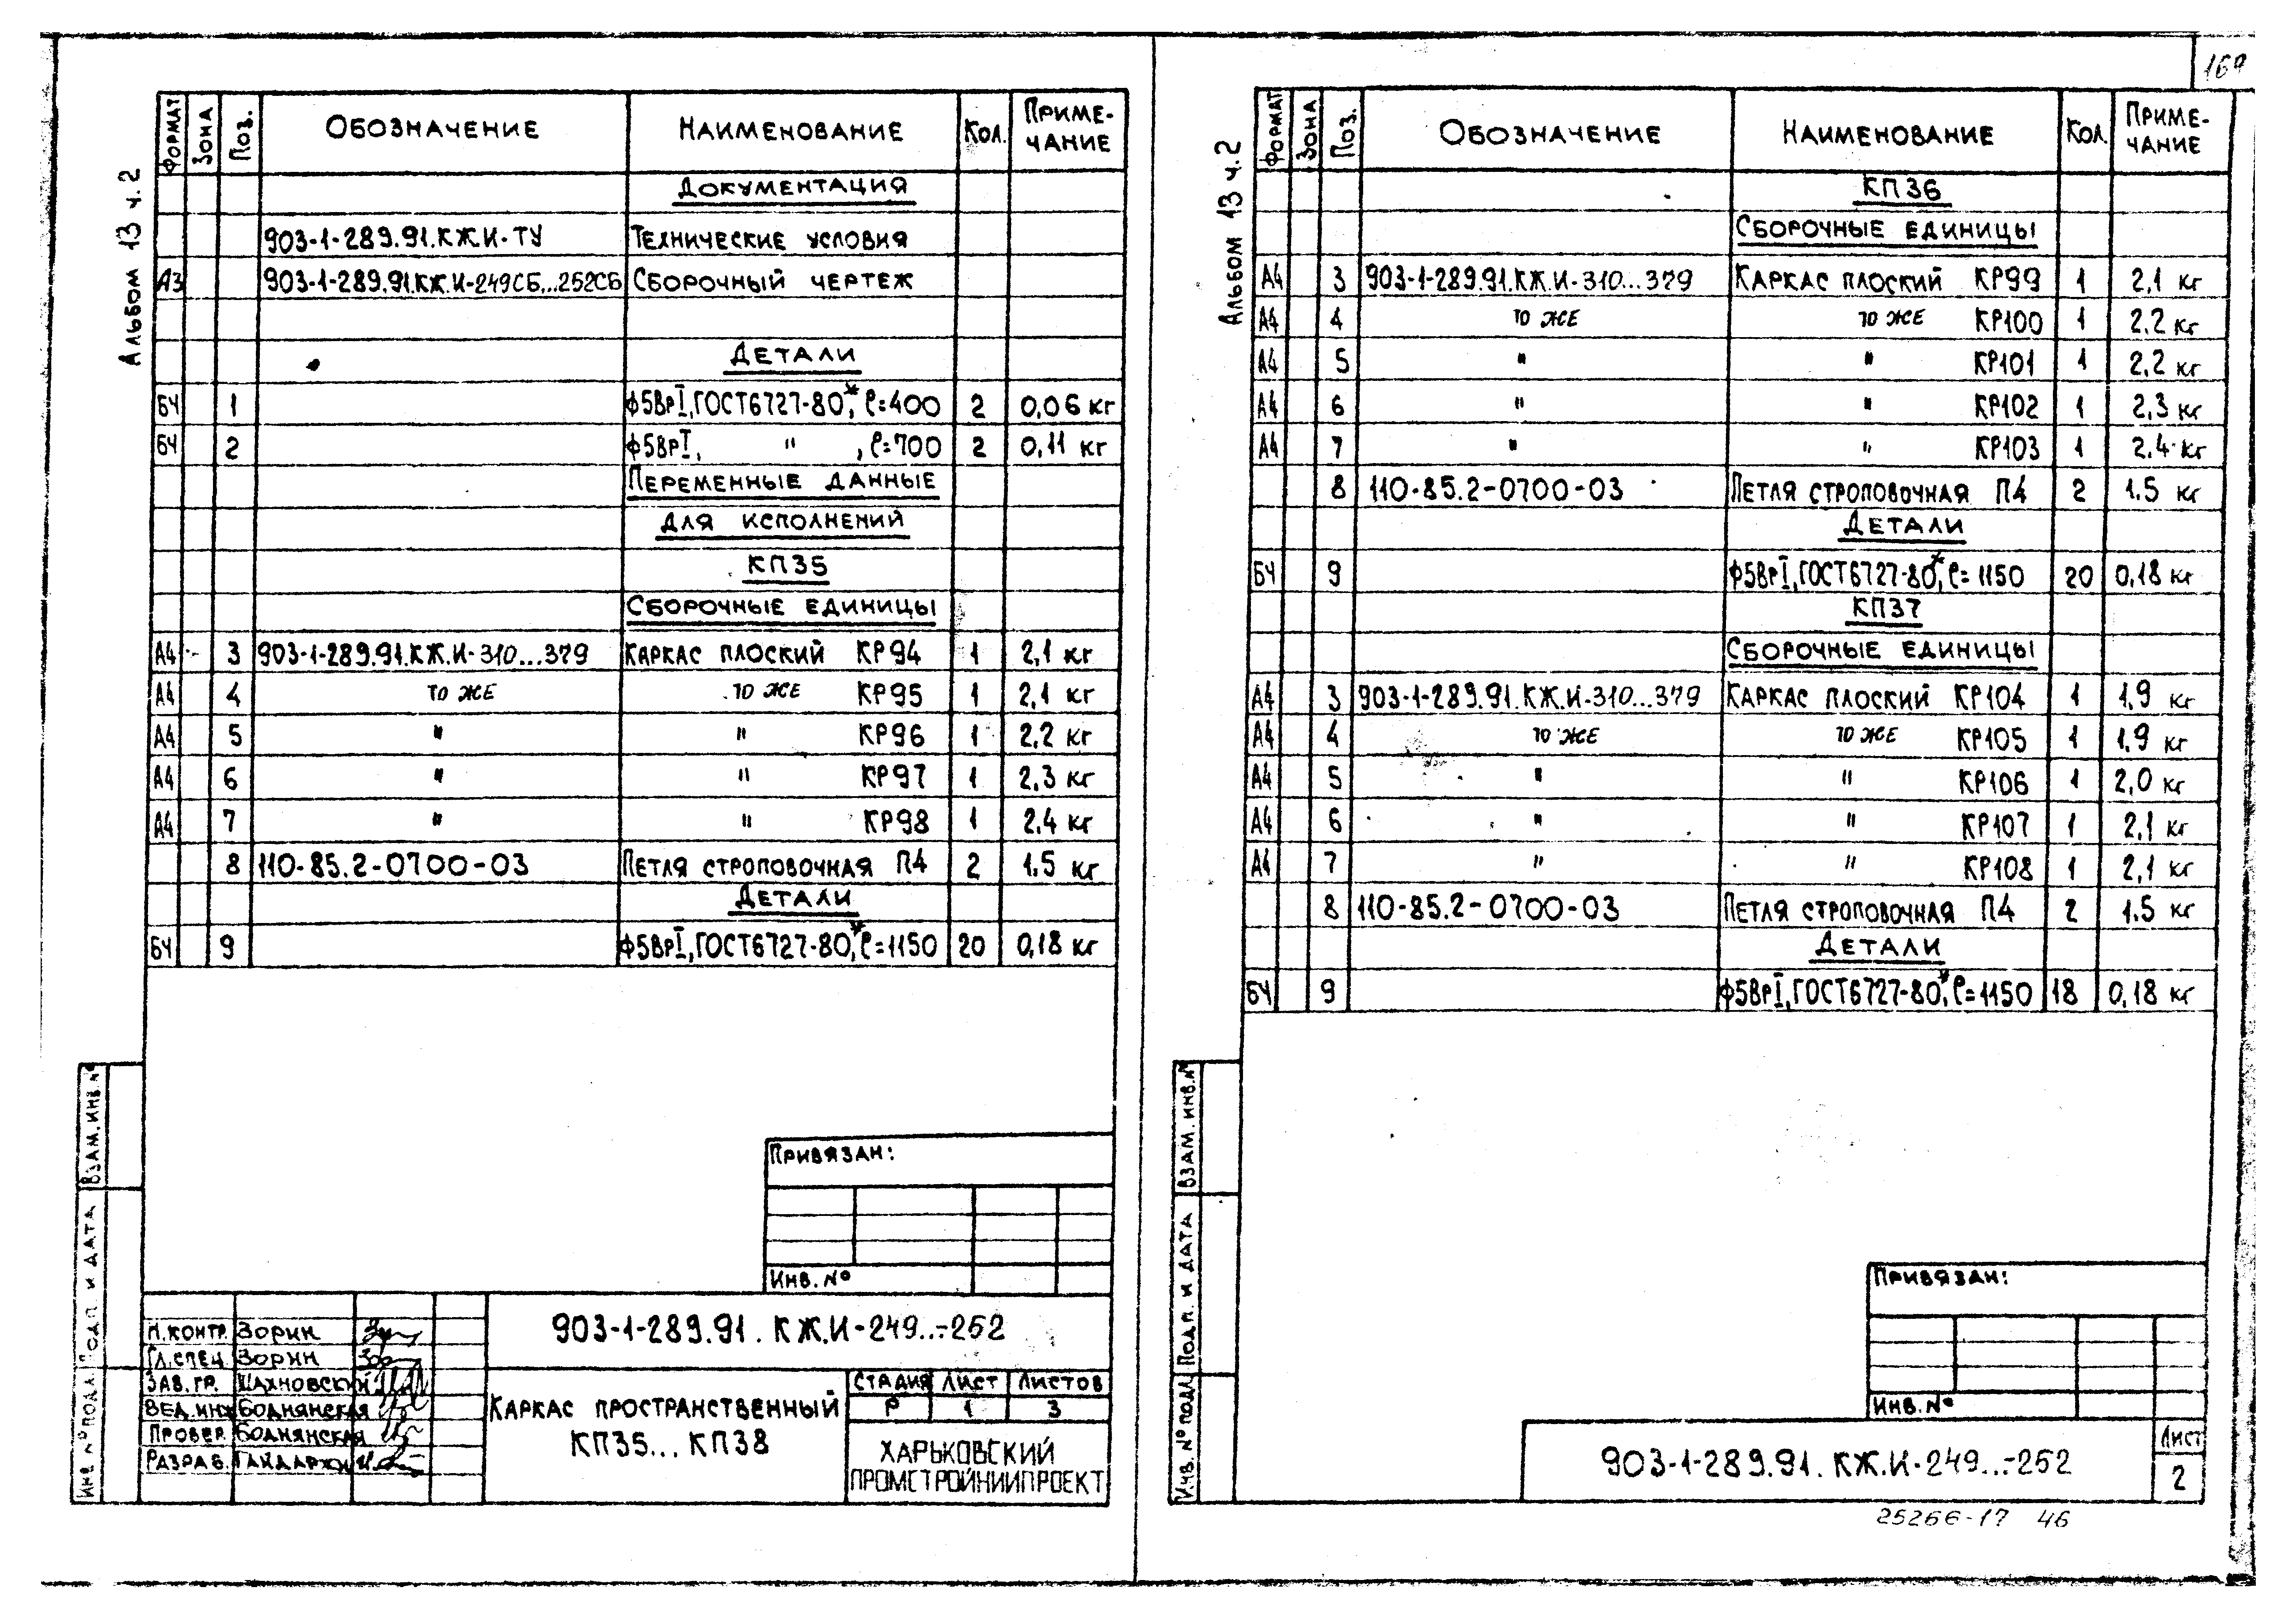 169
Альбом 13 ч.2
Формат Зона Поз. Обозначение Наименование Кол. Приме-чание
Документация
903-1-289.91.КЖ.И-ТУ Технические условия
А3 903-1-289.91.КЖ.И-249СБ...252СБ Сборочный чертеж
Детали
БЧ 1 ф5ВрI, ГОСТ6727-80*, ℓ=400 2 0,06 кг
БЧ 2 ф5ВрI, " , ℓ=700 2 0,11 кг
Переменные данные
для исполнений
КП35
Сборочные единицы
А4 3 903-1-289.91.КЖ.И-310...379 Каркас плоский КР94 1 2,1 кг
А4 4 то же то же КР95 1 2,1 кг
А4 5 " " КР96 1 2,2 кг
А4 6 " " КР97 1 2,3 кг
А4 7 " " КР98 1 2,4 кг
8 110-85.2-0700-03 Петля строповочная П4 2 1.5 кг
Детали
БЧ 9 ф5ВрI, ГОСТ6727-80*, ℓ=1150 20 0,18 кг
Привязан:
Инв. №
903-1-289.91. КЖ.И-249...-252
Н.контр. Зорин
Гл.спец. Зорин
Зав. гр. Шахновский
Вед.инж. Боднянская
Провер. Боднянская
Разраб.
Каркас пространственный
КП35... КП38
Стадия Лист Листов
Р 1 3
Харьковский
Промстройниипроект
Инв. № подл. Подп. и дата Взам. инв. №
Альбом 13 ч.2
Формат Зона Поз. Обозначение Наименование Кол. Приме-чание
КП36
Сборочные единицы
А4 3 903-1-289.91.КЖ.И-310...379 Каркас плоский КР99 1 2,1 кг
А4 4 то же то же КР100 1 2.2 кг
А4 5 " " КР101 1 2,2 кг
А4 6 " " КР102 1 2,3 кг
А4 7 " " КР103 1 2.4 кг
8 110-85.2-0700-03 Петля строповочная П4 2 1.5 кг
Детали
БЧ 9 ф5ВрI, ГОСТ6727-80*, ℓ=1150 20 0,18 кг
КП37
Сборочные единицы
А4 3 903-1-289.91.КЖ.И-310...379 Каркас плоский КР104 1 1,9 кг
А4 4 то же то же КР105 1 1,9 кг
А4 5 " " КР106 1 2,0 кг
А4 6 " " КР107 1 2,1 кг
А4 7 " " КР108 1 2,1 кг
8 110-85.2-0700-03 Петля строповочная П4 2 1.5 кг
Детали
БЧ 9 ф5ВрI, ГОСТ6727-80*, ℓ=1150 18 0,18 кг
Привязан:
Инв. №
903-1-289.91. КЖ.И-249...-252
Лист
2
Инв. № подл. Подп. и дата Взам. инв. №
25266-17 46